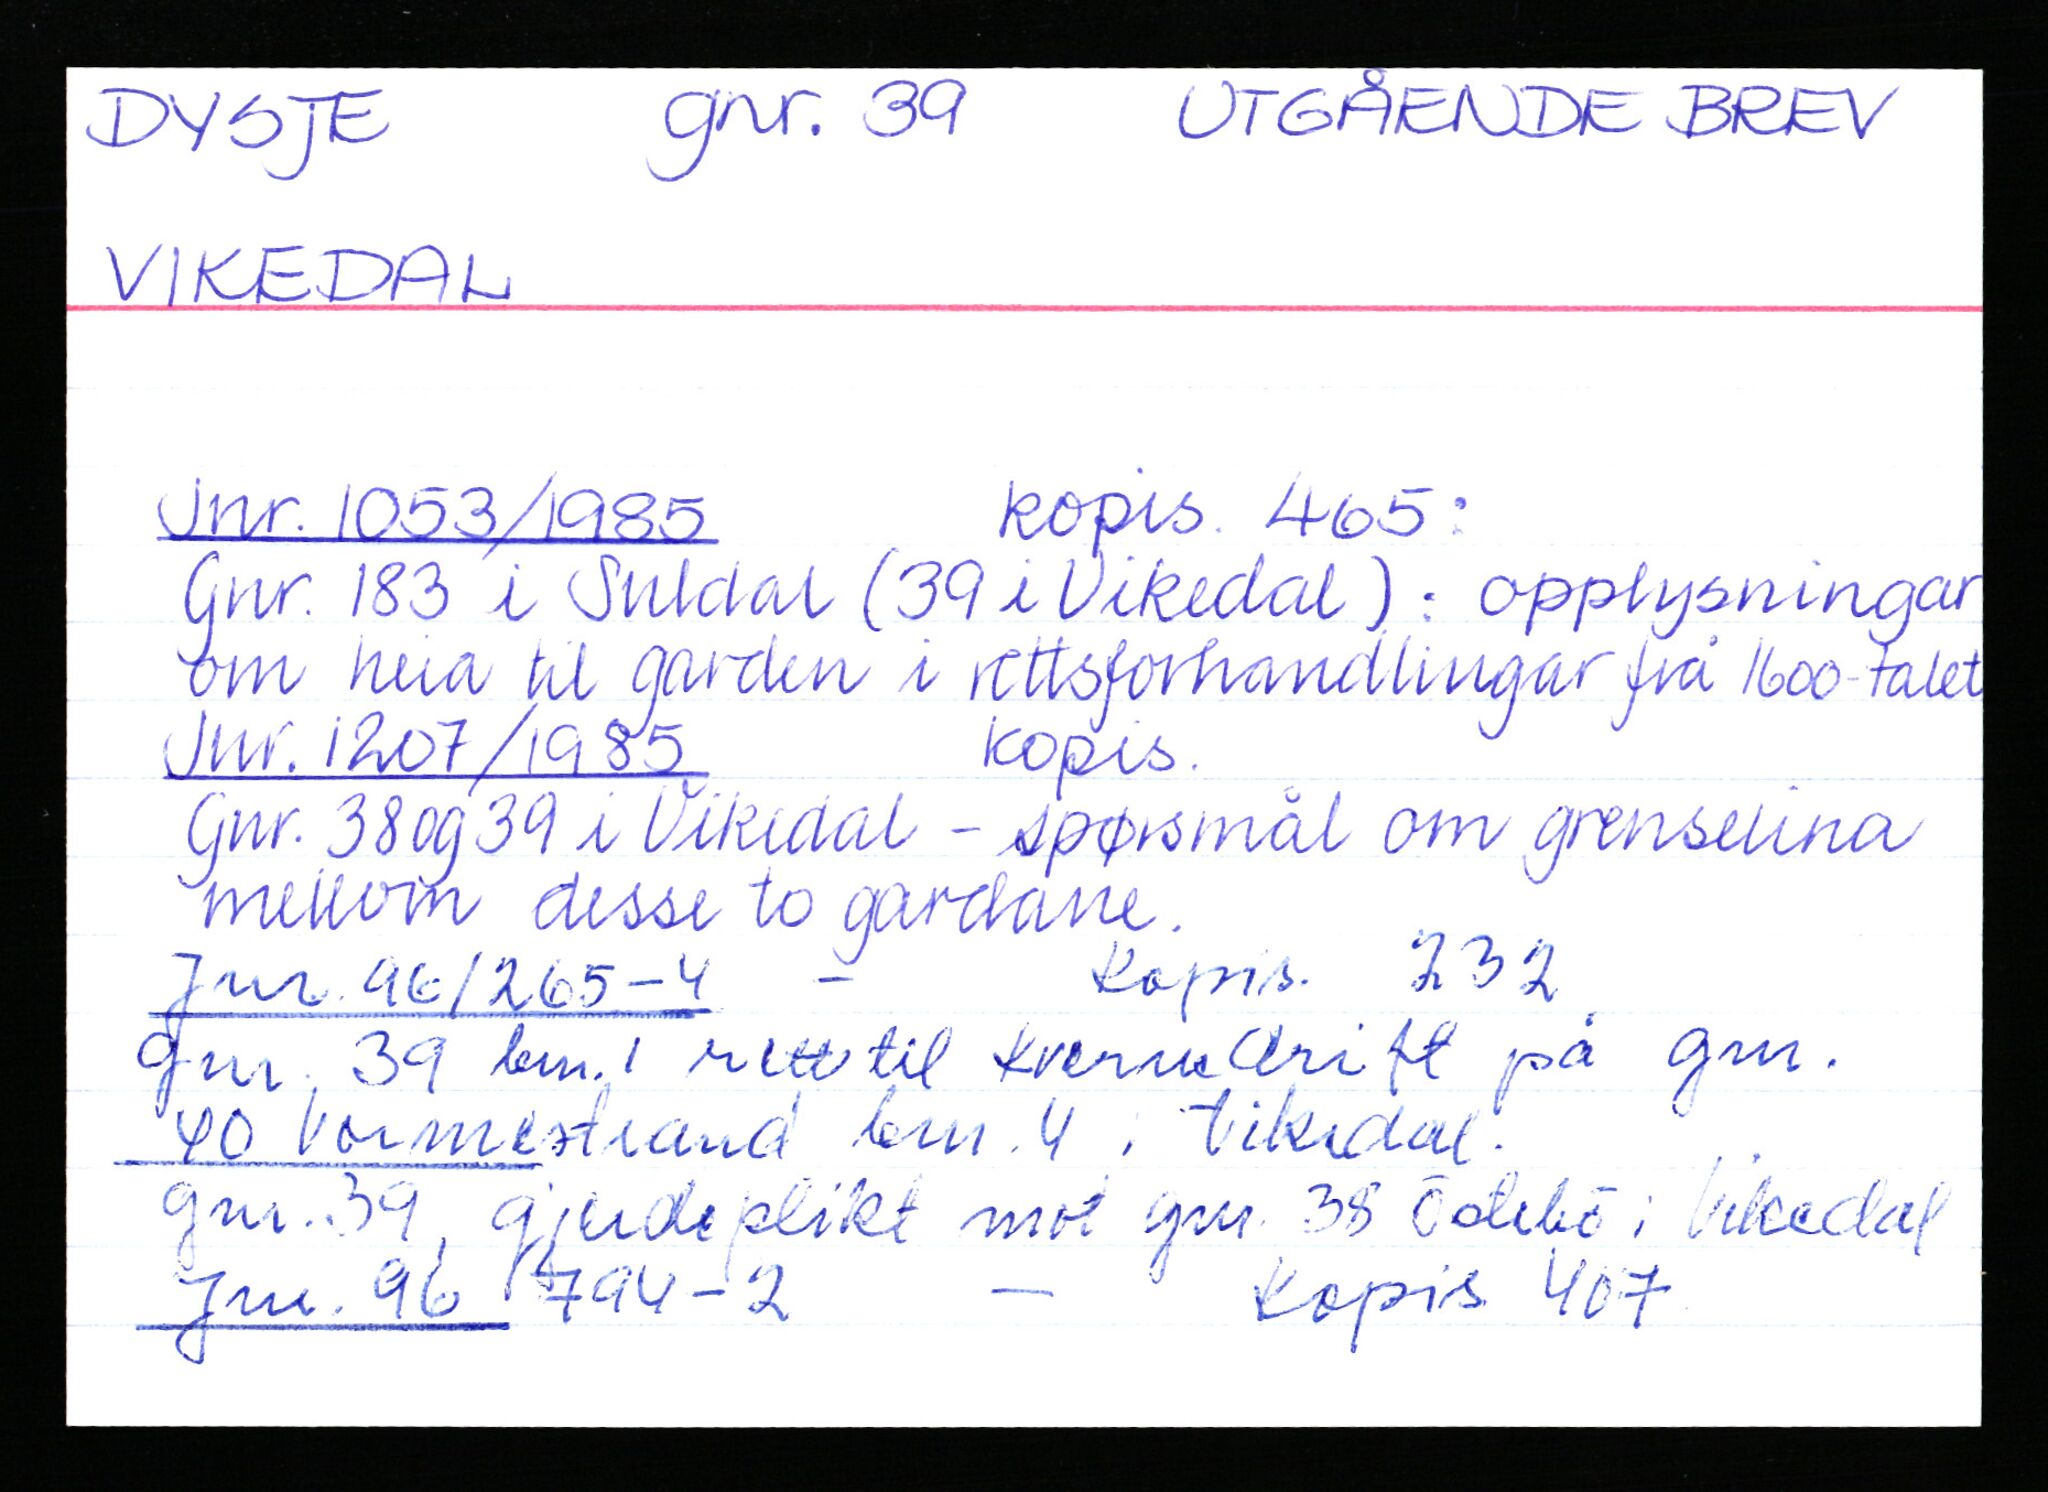 DYSJE gnr. 39 UTGÅENDE BREV
VIKEDAL
Jnr. 1053/1985 kopis. 465:
Gnr. 183 i Suldal (39 i Vikedal): opplysningar
om heia til garden i rettsforhandlingar frå 1600-talet
Jnr. 1207/1985 kopis.
Gnr. 38 og 39 i Vikedal - spørsmål om grenselina
mellom desse to gardane.
Jnr. 96/265-4 - Kopis. 232
Gnr. 39 bnr. 1 rett til kvernedrift på gnr.
40 Vormestrand bnr. 4 i Vikedal.
gnr. 39, gjerdeplikt mot gnr. 38 Ödebö i Vikedal
Jnr. 96 794-2 - Kopis 407